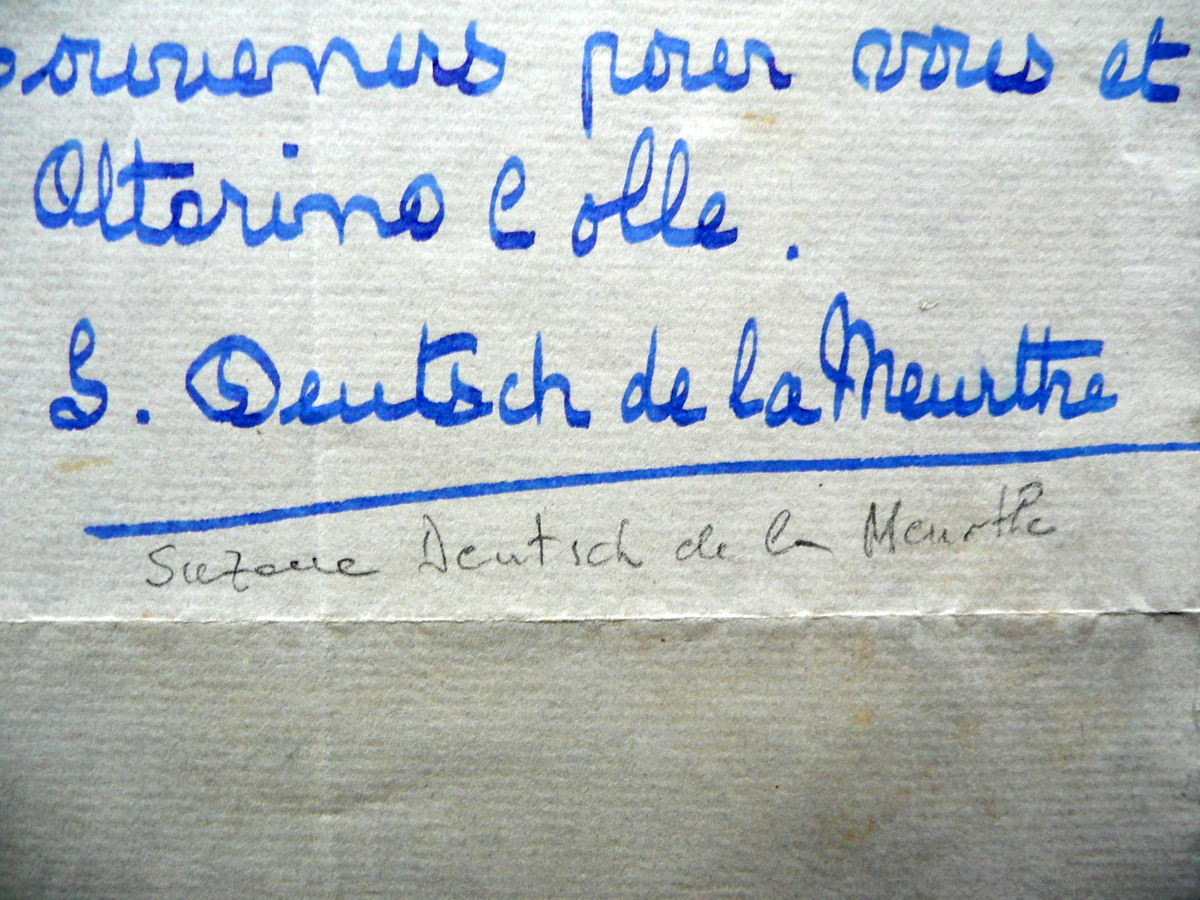 souvenirs pour vous et
Ottorino Colle.
S. Deutsch de la Meurthe
Suzane Deutsch de la Meurthe